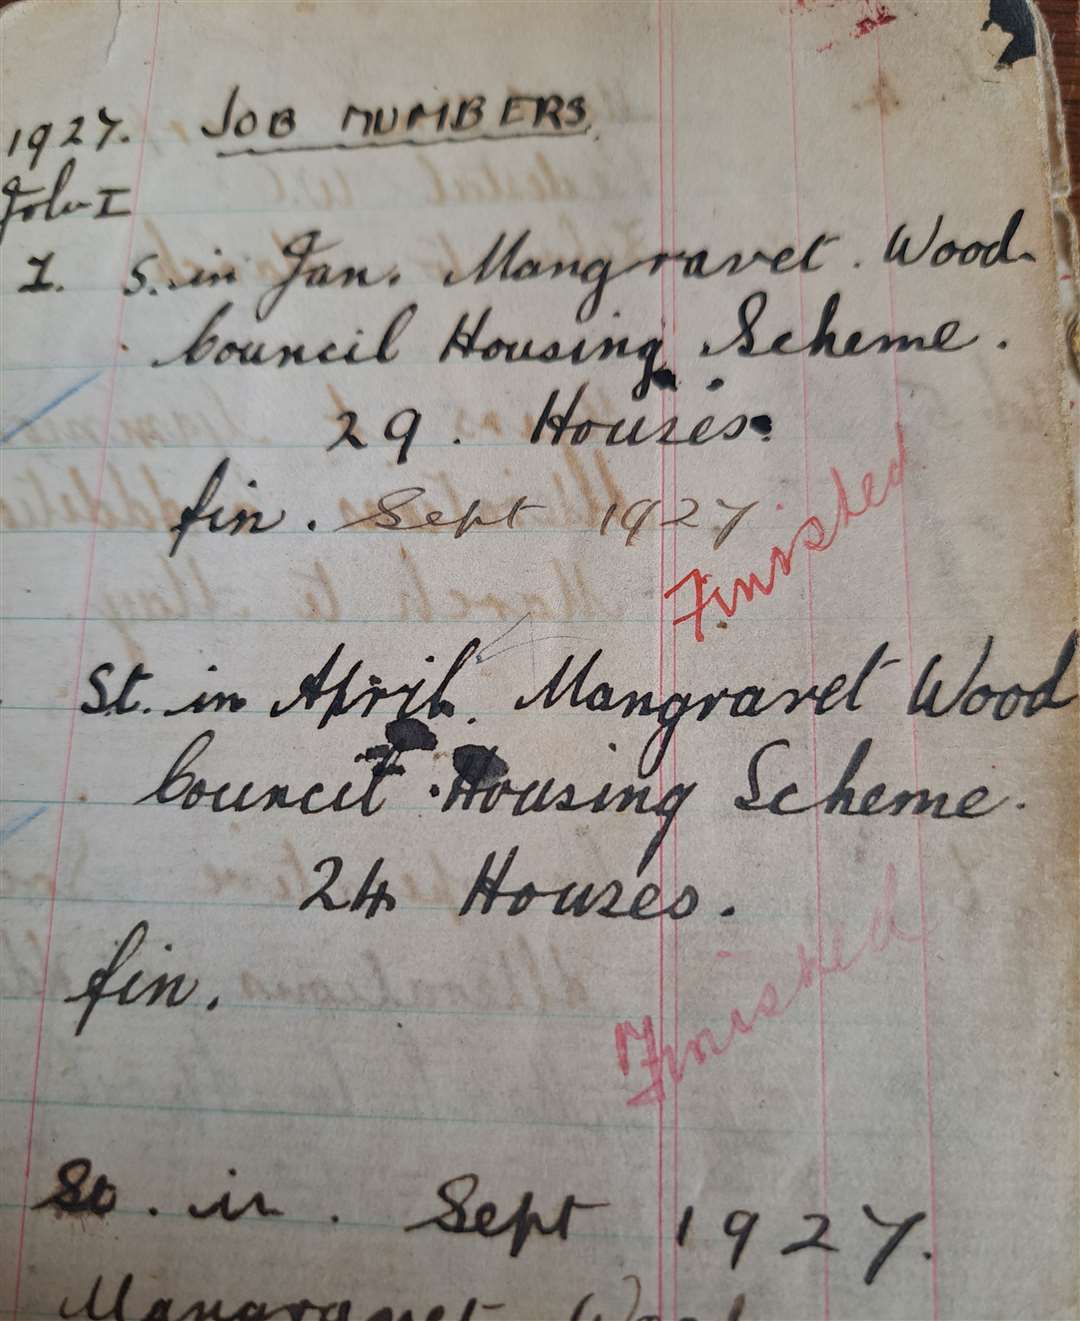 1927. JOB NUMBERS
Folio I
1. S. in Jan. Mangravet. Wood.
Council Housing Scheme.
29. Houses.
fin. Sept 1927
Finished
St. in April. Mangravet Wood
Council Housing Scheme.
24 Houses.
fin.
Finished
St. in. Sept 1927.
Mangravet Wood